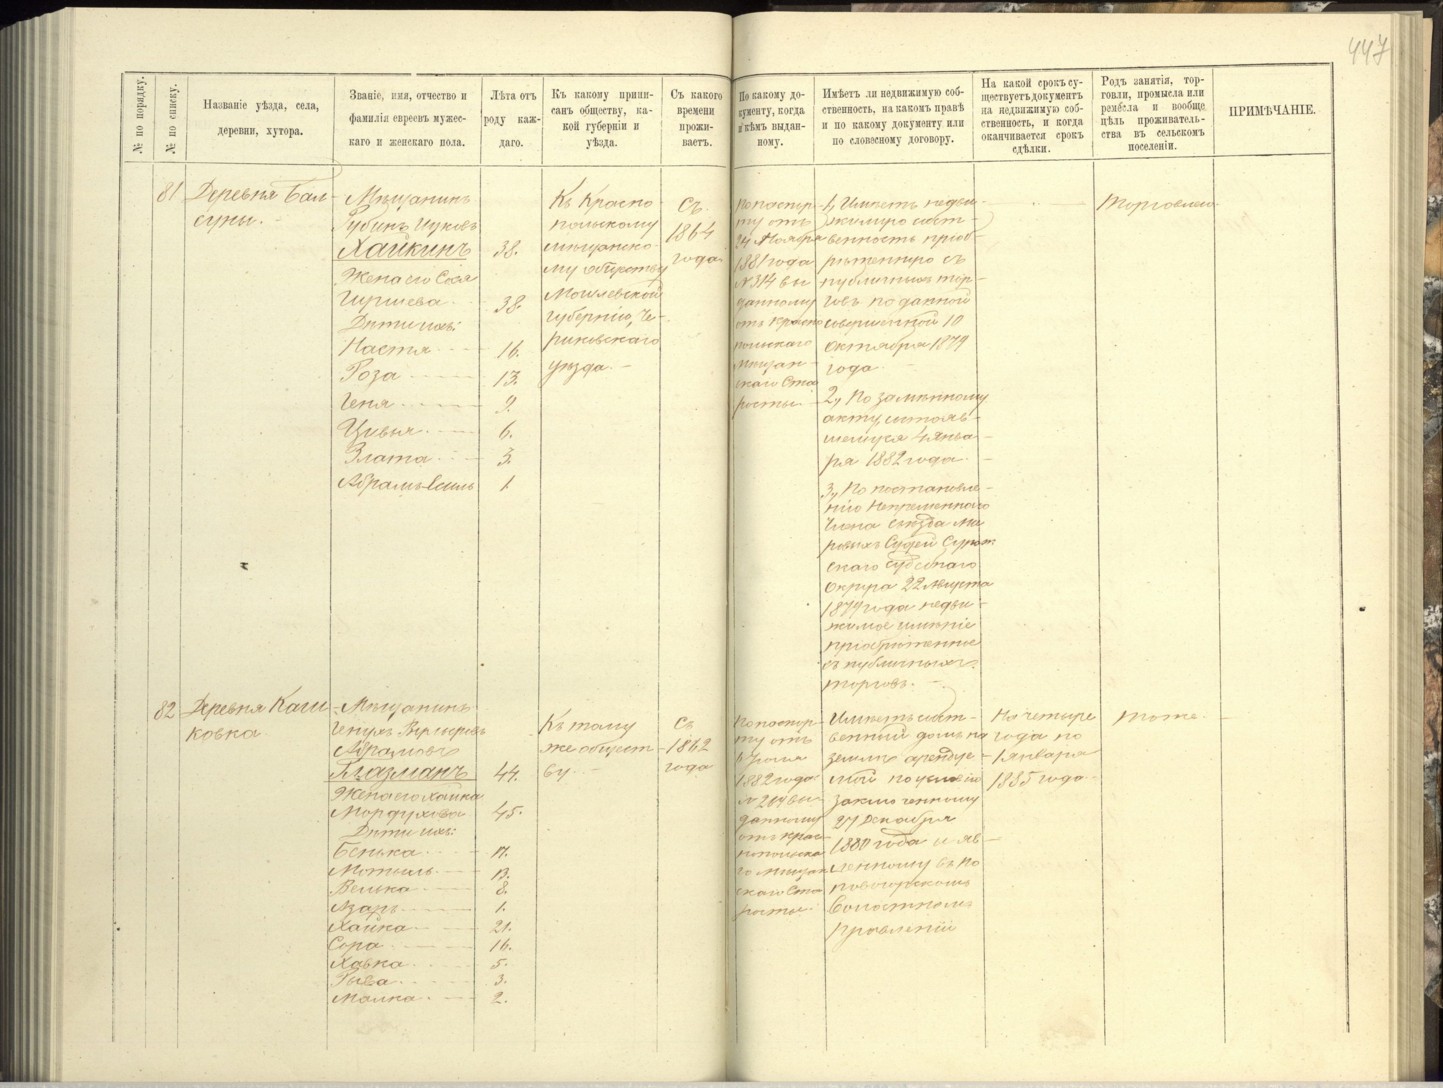 447
№ по порядку.
№ по списку.
Названіе уѣзда, села,
деревни, хутора.
Званіе, имя, отчество и
фамилія евреевъ мужес-
каго и женскаго пола.
Лѣта отъ
роду каж-
даго.
Къ какому припи-
санъ обществу, ка-
кой губерніи и
уѣзда.
Съ какого
времени
прожи-
ваетъ.
По какому до-
кументу, когда
и кѣмъ выдан-
ному.
Имѣетъ ли недвижимую соб-
ственность, на какомъ правѣ
и по какому документу или
по словесному договору.
На какой срокъ су-
ществуетъ документъ
на недвижимую соб-
ственность, и когда
оканчивается срокъ
сдѣлки.
Родъ занятія, тор-
говли, промысла или
ремесла и вообще
цѣль проживатель-
ства въ сельскомъ
поселеніи.
ПРИМѢЧАНІЕ.
81
Деревня Бал-
суны.
Мѣщанинъ
Рубинъ Ицковъ
Хайкинъ 38.
Жена его Сося
38.
Дѣти ихъ:
Настя 16.
Роза 13.
Геня 9.
Цивья 6.
Злата 3.
Абрамъ 1.
Къ Красно-
польскому
мѣщанско-
му обществу
Могилевской
губерніи, Че-
риковскаго
уѣзда.
Съ
1864
года
По паспор-
ту отъ
24 Ноября
1881 года
№ 314 вы
данному
отъ Красно
польскаго
мѣщан-
скаго Ста
росты.
1, Имѣетъ недви-
жимую собст-
венность пріоб-
рѣтенную съ
публичныхъ тор-
говъ по данной
совершенной 10
октября 1879
года.
2, По замѣнному
акту, состояв-
шемуся 4 Янва-
ря 1882 года
3, По постановле-
нію Непремѣннаго
Члена съѣзда Ми
ровыхъ Судей Сураж
скаго судебнаго
округа 22 Августа
1879 года недви-
жимое имѣніе
пріобрѣтенное
съ публичныхъ
торговъ.
Торговлею
82
Деревня Каш-
ковка
Мѣщанинъ
Абрамовъ
Глазманъ 44.
Жена его Хайка
Мордухова 45.
Дѣти ихъ:
Бенька 17.
13.
Велька 8.
Азаръ 1.
Хайка 21.
Сора 16.
Хавка 5.
Рыва 3.
Малка 2.
Къ тому
же общест-
ву
Съ
1862
года
По паспор-
ту отъ
1882 года
данному
отъ Крас-
нопольска
го мѣщан
скаго Ста
росты.
Имѣетъ собст-
венный домъ на
землѣ арендуе-
мой по условію
заключенному
27 Декабря
1880 года и яв-
ленному въ По
повогорскомъ
Волостномъ
Правленіи
На четыре
года по
1 января
1885 года
Тоже.